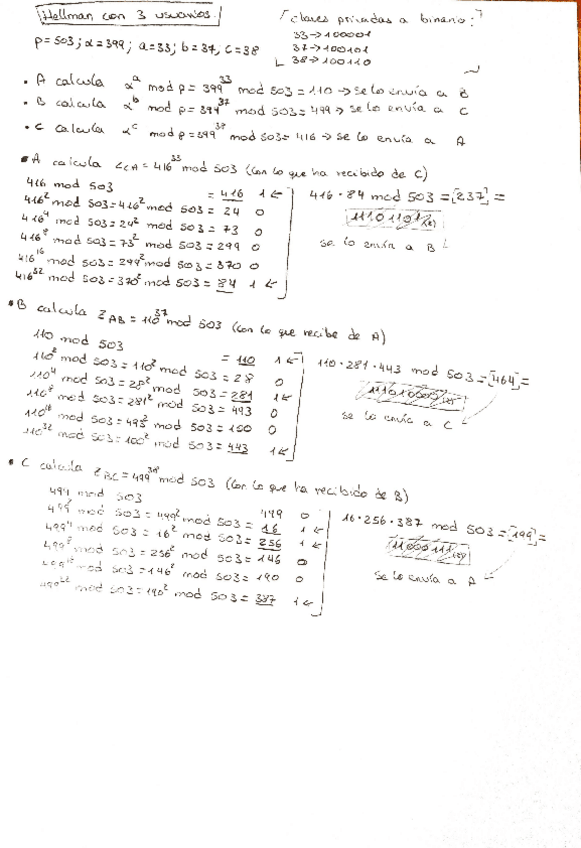 Hellman con 3 usuarios
claves privadas a binario:
33→100001
37→100101
38→100110
p=503; α=399; a=33; b=37, c=38
• A calcula α^a mod p = 399^33 mod 503 = 110 → se lo envía a B
• B calcula α^b mod p = 399^37 mod 503 = 499 → se lo envía a C
• C calcula α^c mod p = 399^38 mod 503 = 416 → se lo envía a A
• A calcula z_CA = 416^33 mod 503 (con lo que ha recibido de C)
416 mod 503 = 416 1←
416^2 mod 503 = 416^2 mod 503 = 24 0
416^4 mod 503 = 24^2 mod 503 = 73 0
416^8 mod 503 = 73^2 mod 503 = 299 0
416^16 mod 503 = 299^2 mod 503 = 370 0
416^32 mod 503 = 370^2 mod 503 = 84 1←
416·84 mod 503 = [237] =
11101101(2)
se lo envía a B
• B calcula z_AB = 110^37 mod 503 (con lo que recibe de A)
110 mod 503 = 110 1←
110^2 mod 503 = 110^2 mod 503 = 28 0
110^4 mod 503 = 28^2 mod 503 = 281 1←
110^8 mod 503 = 281^2 mod 503 = 493 0
110^16 mod 503 = 493^2 mod 503 = 100 0
110^32 mod 503 = 100^2 mod 503 = 443 1←
110·281·443 mod 503 = [464] =
111010000(2)
se lo envía a C
• C calcula z_BC = 499^38 mod 503 (con lo que ha recibido de B)
499 mod 503 499 0
499^2 mod 503 = 499^2 mod 503 = 16 1←
499^4 mod 503 = 16^2 mod 503 = 256 1←
499^8 mod 503 = 256^2 mod 503 = 146 0
499^16 mod 503 = 146^2 mod 503 = 190 0
499^32 mod 503 = 190^2 mod 503 = 387 1←
16·256·387 mod 503 = [199] =
11000111(2)
se lo envía a A